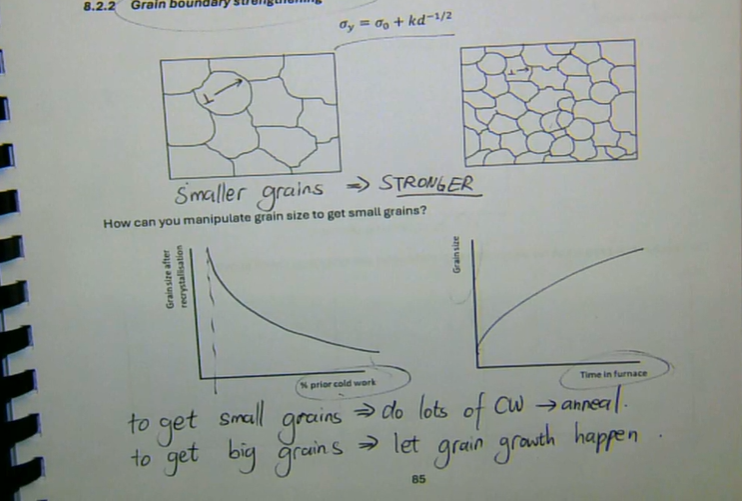 8.2.2 Grain boundary strengthening
σy = σ0 + kd^-1/2
Smaller grains ⇒ STRONGER
How can you manipulate grain size to get small grains?
Grain size after
recrystallisation
% prior cold work
Grain size
Time in furnace
to get small grains ⇒ do lots of CW → anneal.
to get big grains ⇒ let grain growth happen.
85